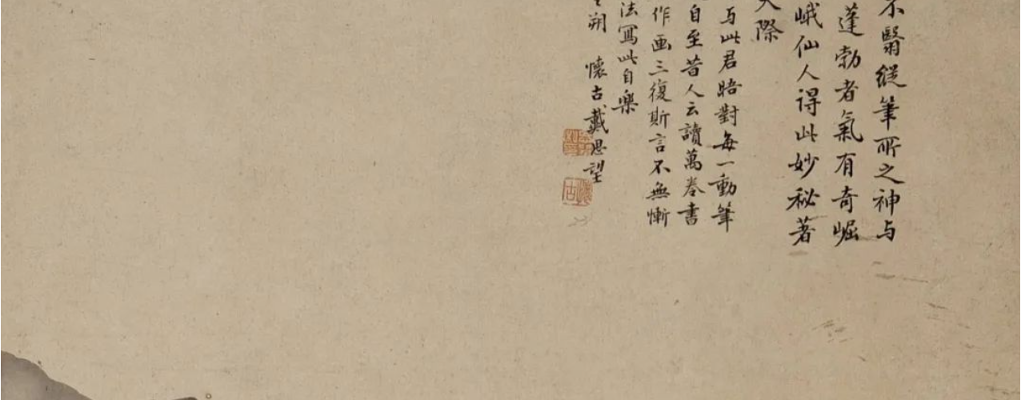 不醫縱筆所之神与
蓬勃者氣有奇崛
峨仙人得此妙秘著
際
与此君晤對每一動筆
自至昔人云讀萬卷書
作画三復斯言不無慚
法寫此自樂
朔 懷古戴思望
懷古